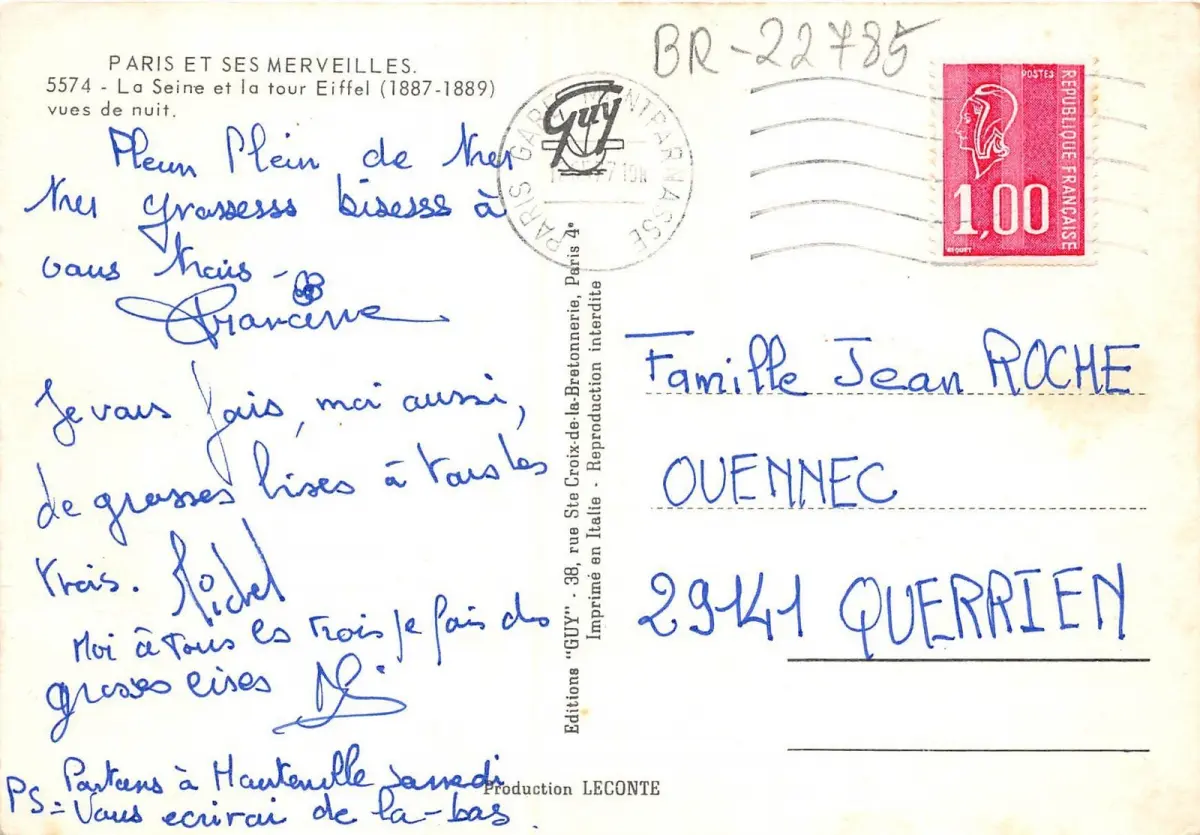 BR-22785
PARIS ET SES MERVEILLES.
5574 - La Seine et la tour Eiffel (1887-1889)
vues de nuit.
Plein Plein de tres
tres grossesss bisesss à
vous trois -
Francine
Je vous fais, moi aussi,
de grosses bises à tous les
trois. Michel
Moi à tous les trois je fais des
grosses bises
PS = Partons à Hauteville samedi
Vous ecrirai de la-bas.
Guy
PARIS GARE MONTPARNASSE
Editions "GUY" - 38, rue Ste Croix-de-la-Bretonnerie, Paris 4e
Imprimé en Italie - Reproduction interdite
Production LECONTE
POSTES
REPUBLIQUE FRANÇAISE
1,00
BEQUET
Famille Jean ROCHE
QUENNEC
29141 QUERRIEN